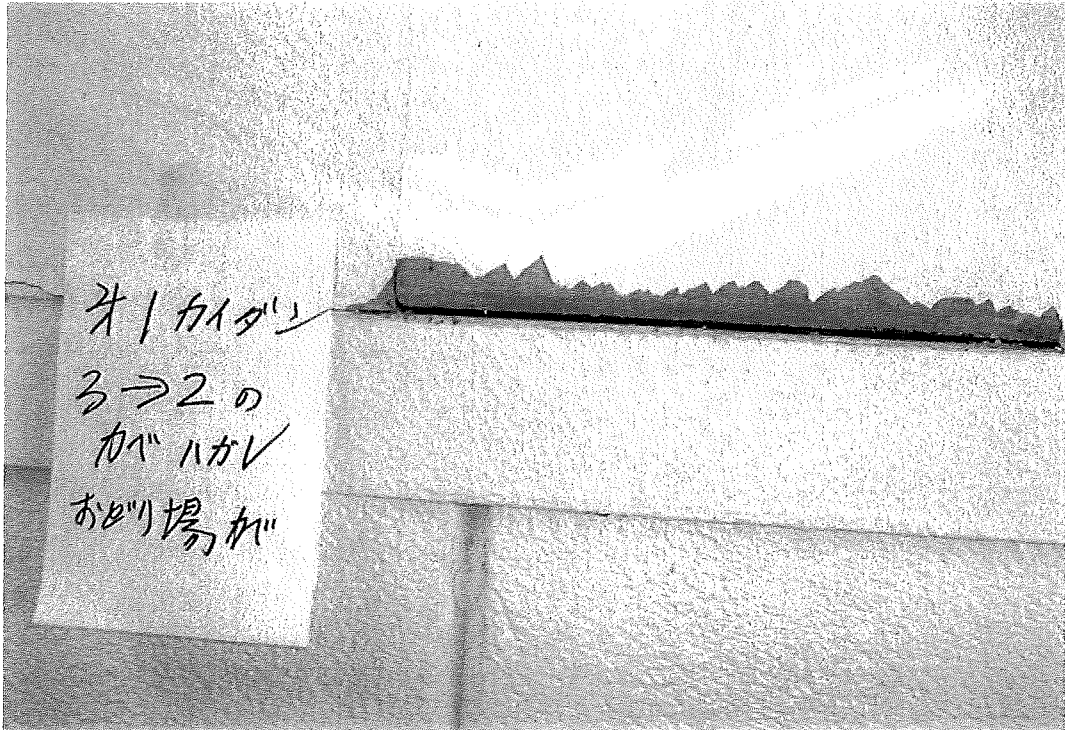 才1カイダン
3→2の
カベハガレ
おどり場カベ